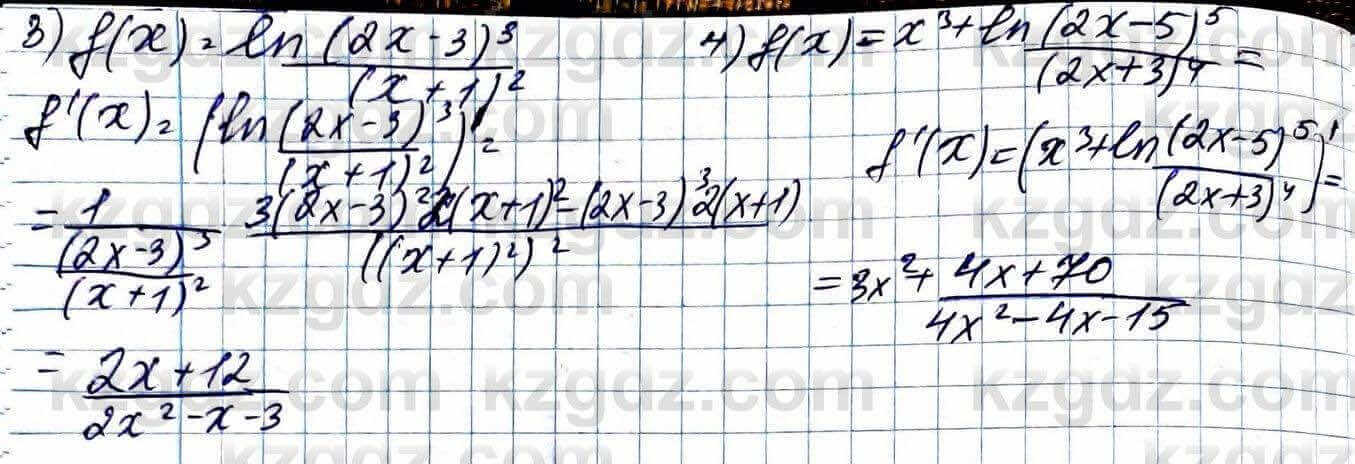 3) f(x) = ln (2x-3)³/(x+1)²
f'(x) = (ln (2x-3)³/(x+1)²)' =
= 1/((2x-3)³/(x+1)²) · (3(2x-3)²2(x+1)² - (2x-3)³2(x+1))/((x+1)²)²
= (2x+12)/(2x²-x-3)
4) f(x) = x³+ln (2x-5)⁵/(2x+3)⁴ =
f'(x) = (x³+ln (2x-5)⁵/(2x+3)⁴)' =
= 3x² + (4x+70)/(4x²-4x-15)
kzgdz.com